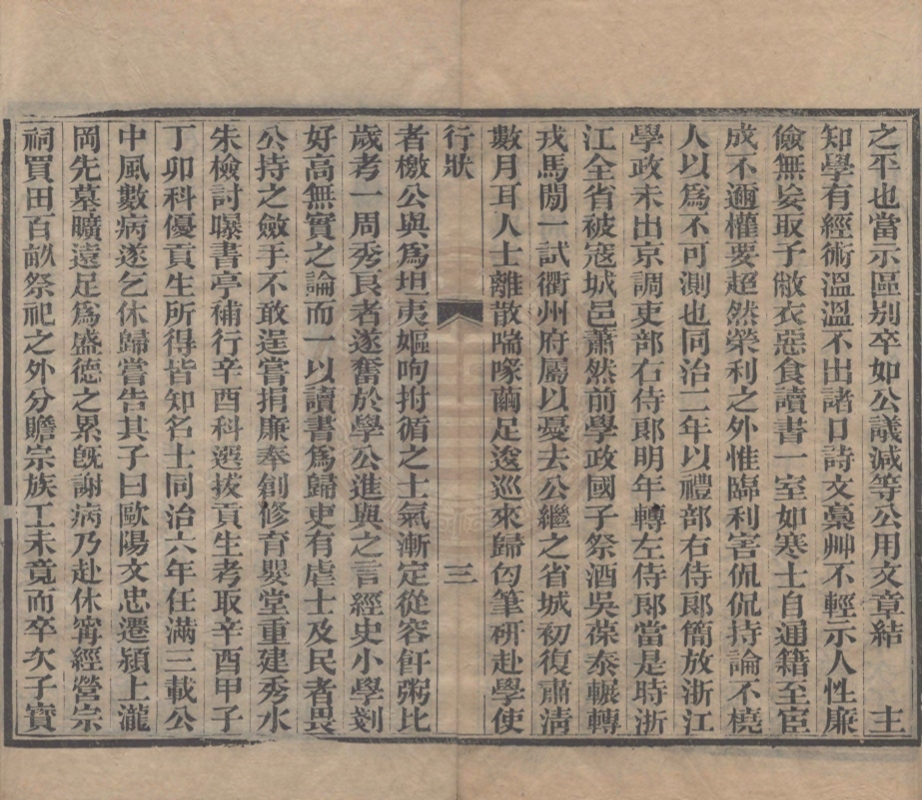 之平也當示區別卒如公議減等公用文章結　主
知學有經術溫溫不出諸口詩文稾艸不輕示人性廉
儉無妄取予敝衣惡食讀書一室如寒士自通籍至宦
成不邇權要超然榮利之外惟臨利害侃侃持論不橈
人以爲不可測也同治二年以禮部右侍郞簡放浙江
學政未出京調吏部右侍郞明年轉左侍郞當是時浙
江全省被寇城邑蕭然前學政國子祭酒吳葆泰輾轉
戎馬閒一試衢州府屬以憂去公繼之省城初復肅淸
數月耳人士離散喘喙繭足逡巡來歸匃筆硏赴學使
行狀　三
者檄公與爲坦夷嫗呴拊循之士氣漸定從容飦粥比
歲考一周秀良者遂奮於學公進與之言經史小學剗
好高無實之論而一以讀書爲歸吏有虐士及民者畏
公持之斂手不敢逞嘗捐廉奉創修育嬰堂重建秀水
朱檢討曝書亭補行辛酉科選拔貢生考取辛酉甲子
丁卯科優貢生所得皆知名士同治六年任滿三載公
中風數病遂乞休歸嘗告其子曰歐陽文忠遷潁上瀧
岡先墓曠遠足爲盛德之累旣謝病乃赴休寗經營宗
祠買田百畝祭祀之外分贍宗族工未竟而卒次子寳